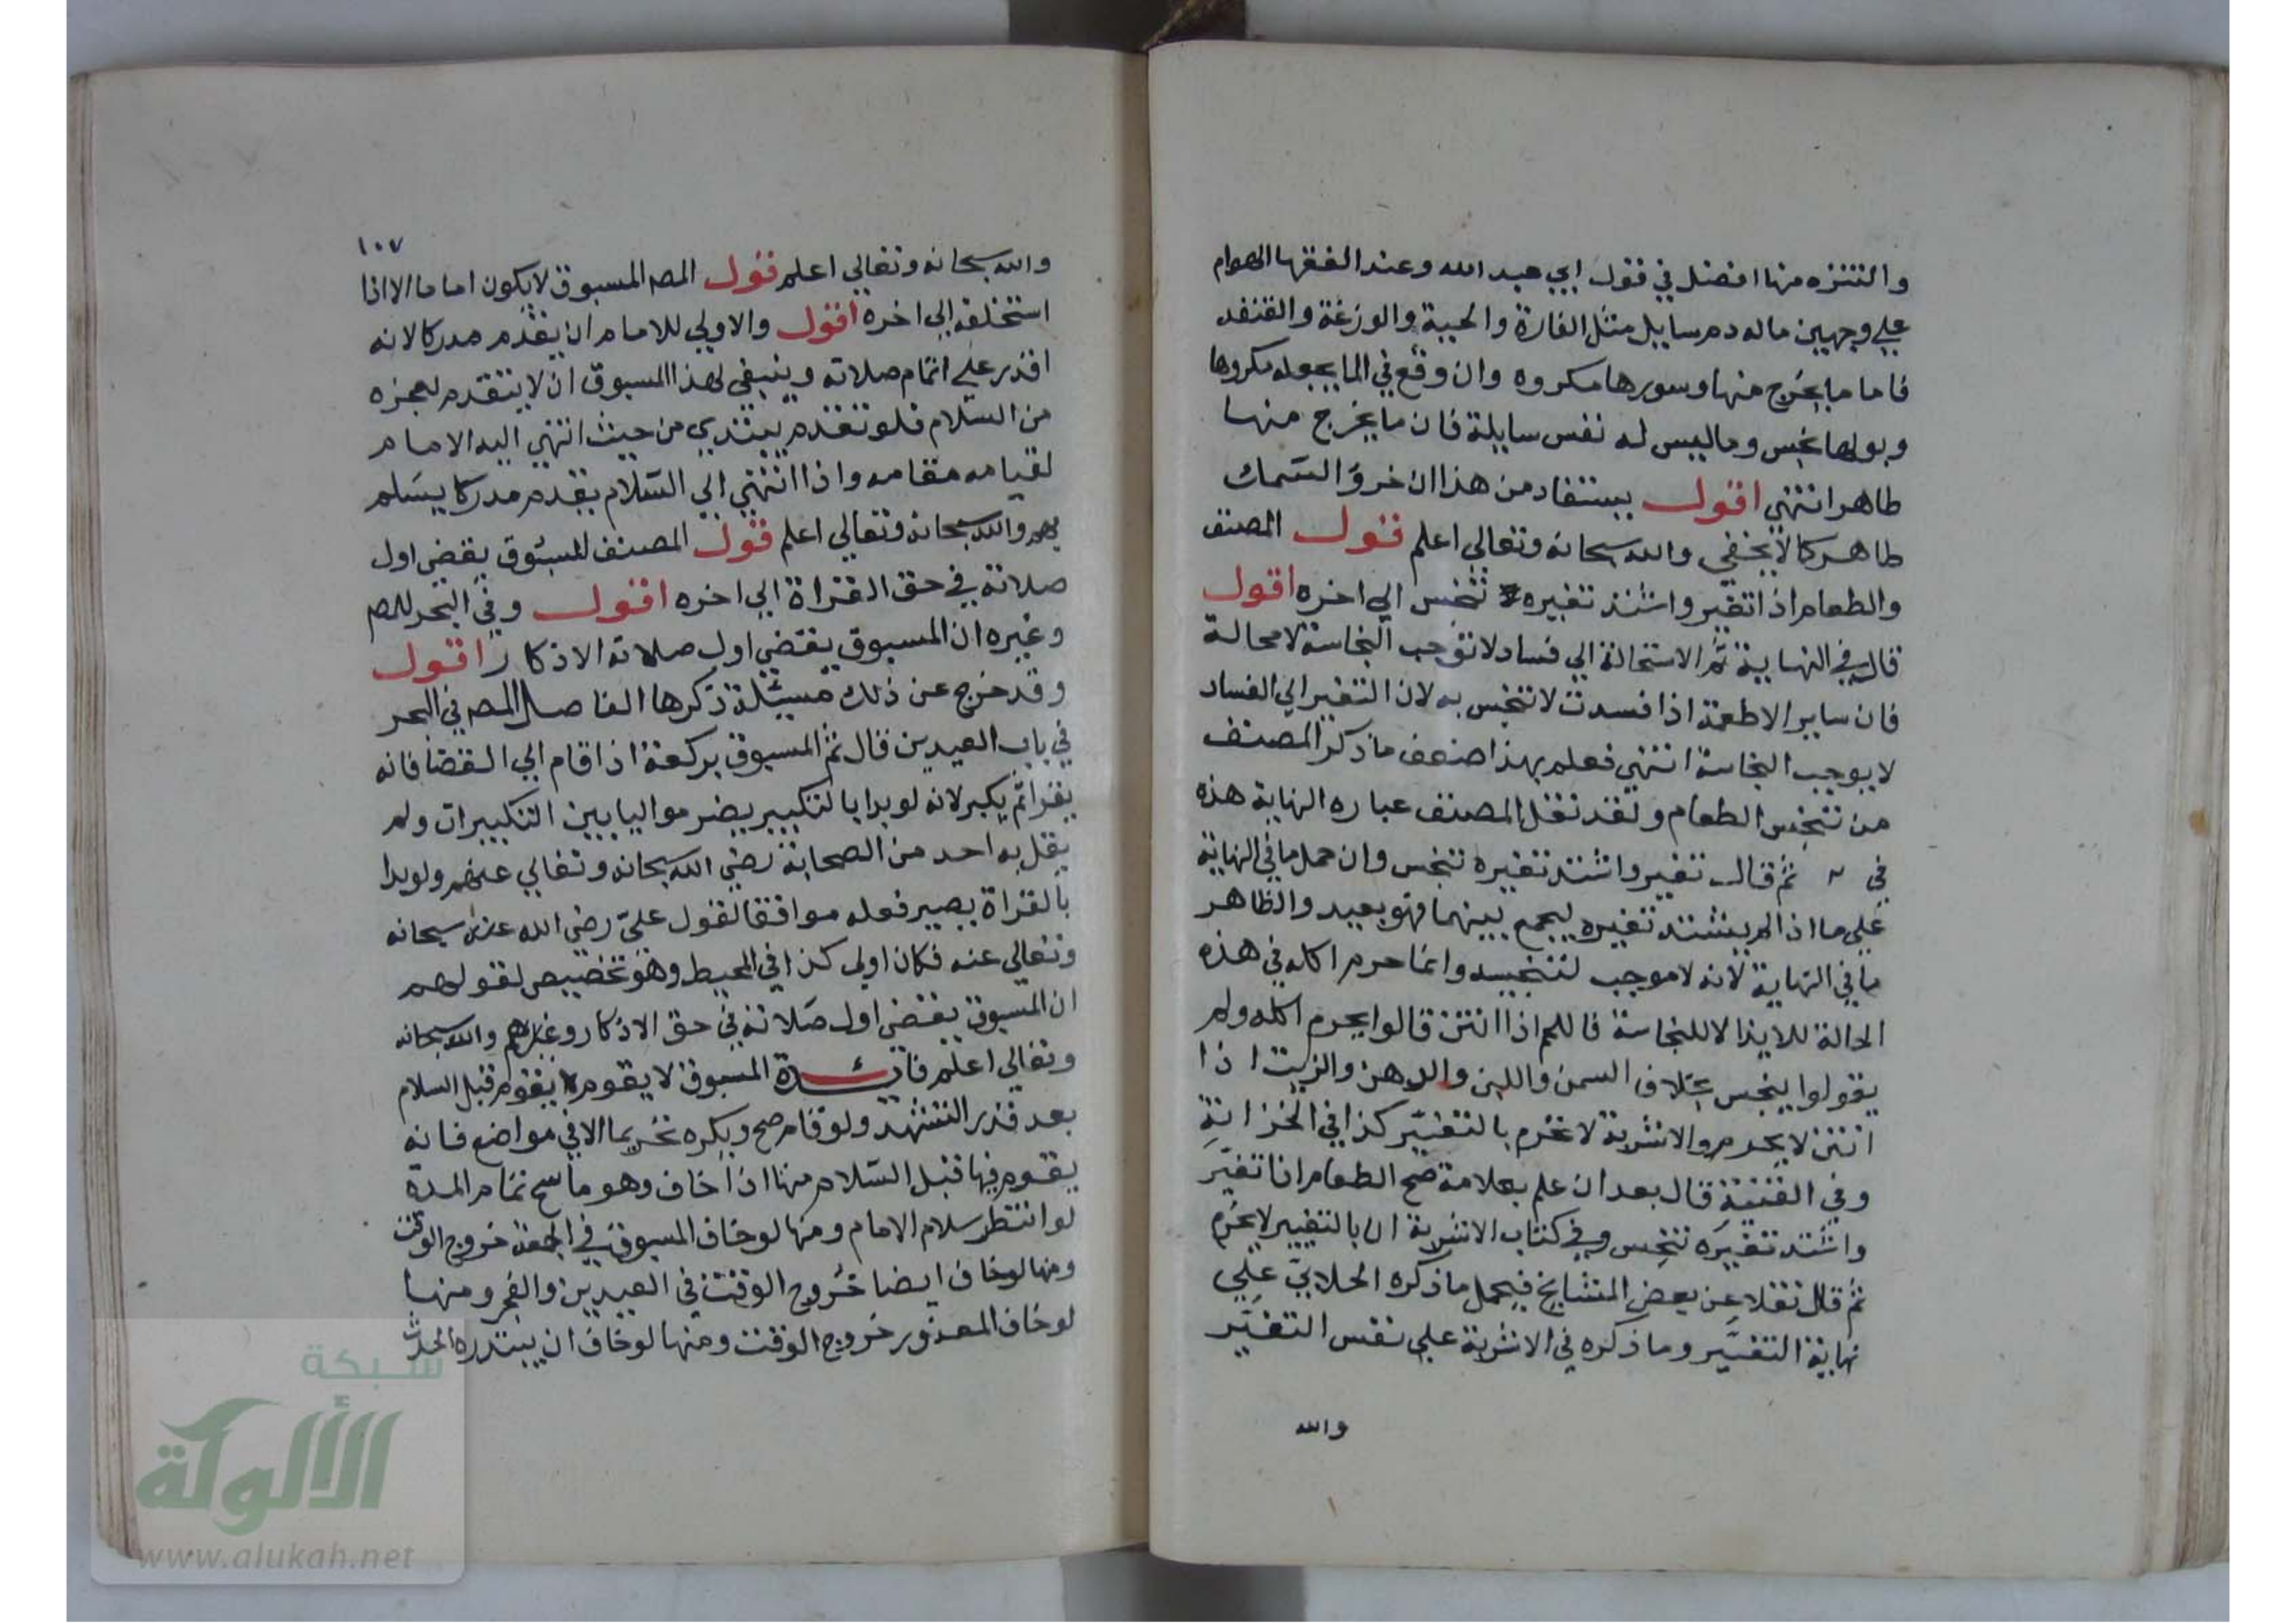 والتنزه منها افضل في قول ابي عبد الله وعند الفقها الهوام
علي وجهين ماله دم سايل مثل الفارة والحية والوزغة والقنفد
فاما ما يخرج منها وسورها مكروه وان وقع في الما يجعله مكروها
وبولها نجس وما ليس له نفس سايلة فان ما يخرج منها
طاهر انتهي اقول يستفاد من هذا ان خرؤ السمك
طاهر كما لا يخفي والله سبحانه وتعالي اعلم قول المصنف
والطعام اذا تغير واشتد تغيره تنجس الي اخره اقول
قال في النهاية ثم الاستحالة الي فساد لا توجب النجاسة لا محالة
فان ساير الاطعمة اذا فسدت لا تنجس به لان التغير الي الفساد
لا يوجب النجاسة انتهي فعلم بهذا ضعف ما ذكر المصنف
من تنجس الطعام ولقد نقل المصنف عباره النهاية هذه
في ثم قال تغير واشتد تغيره تنجس وان حمل ما في النهاية
علي ما اذا لم يشتد تغيره ليجمع بينهما فهو بعيد والظاهر
ما في النهاية لانه لا موجب لتنجيسه وانما حرم اكله في هذه
الحالة للايذا لا للنجاسة فاللحم اذا انتن قالوا يحرم اكله ولم
يقولوا ينجس بخلاف السمن واللبن والدهن والزيت اذا
انتن لا يحرم والاشربة لا تحرم بالتغير كذا في الخزانة
وفي القنية قال بعد ان علم بعلامة صح الطعام اذا تغير
واشتد تغيره تنجس وفي كتاب الاشربة ان بالتغيير لا يحرم
ثم قال نقلا عن بعض المشايخ فيحمل ما ذكره الحلابي علي
نهاية التغير وما ذكره في الاشربة علي نفس التغير
والله
١٠٧
والله سبحانه وتعالي اعلم قول المصـ المسبوق لا يكون اماما الا اذا
استخلفه الي اخره اقول والاولي للامام ان يقدم مدركا لانه
اقدر علي اتمام صلاته وينبغي لهذا المسبوق ان لا يتقدم لعجزه
من السلام فلو تقدم يبتدي من حيث انتهي اليه الامام
لقيامه مقامه واذا انتهي الي السلام يقدم مدركا يسلم
بهم والله سبحانه وتعالي اعلم قول المصنف المسبوق يقضي اول
صلاته في حق القراة الي اخره اقول وفي البحر للمصـ
وغيره ان المسبوق يقضي اول صلاته الا ذكار اقول
وقد خرج عن ذلك مسئلة ذكرها الفاضل المصـ في البحر
في باب العيدين قال ثم المسبوق بركعة اذا قام الي القضا فانه
يقرا ثم يكبر لانه لو بدا بالتكبير يصر مواليا بين التكبيرات ولم
يقل به احد من الصحابة رضي الله سبحانه وتعالي عنهم ولو بدا
بالقراة يصير فعله موافقا لقول علي رضي الله عنه سبحانه
وتعالي عنه فكان اولي كذا في المحيط وهو تخصيص لقولهم
ان المسبوق يقضي اول صلاته في حق الاذكار وغيرهم والله سبحانه
وتعالي اعلم فايدة المسبوق لا يقوم قبل السلام
بعد قدر التشهد ولو قام صح ويكره تحريما الا في مواضع فانه
يقوم فيها قبل السلام منها اذا خاف وهو ماسح تمام المدة
لو انتظر سلام الامام ومنها لو خاف المسبوق في الجمعة خروج الوقت
ومنها لو خاف ايضا خروج الوقت في العيدين والفجر ومنها
لو خاف المعذور خروج الوقت ومنها لو خاف ان يبتدره الحدث
شبكة
الألوكة
www.alukah.net